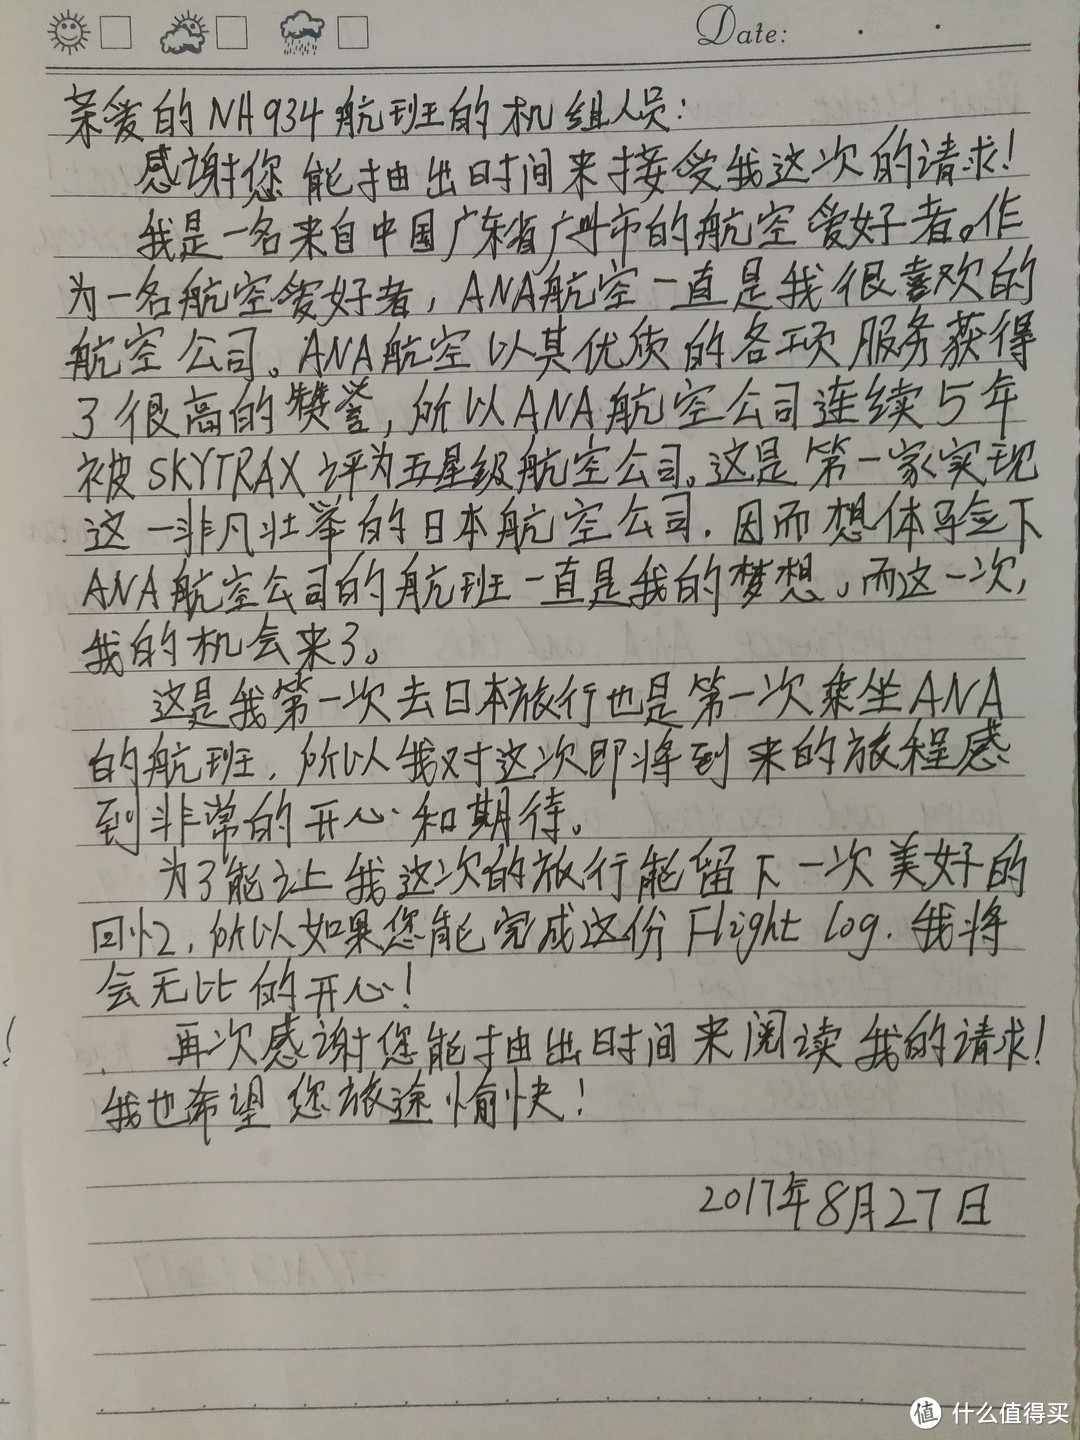 Date:
亲爱的NH934航班的机组人员：
感谢您能抽出时间来接受我这次的请求！
我是一名来自中国广东省广州市的航空爱好者。作
为一名航空爱好者，ANA航空一直是我很喜欢的
航空公司。ANA航空以其优质的各项服务获得
了很高的赞誉，所以ANA航空公司连续5年
被SKYTRAX评为五星级航空公司。这是第一家实现
这一非凡壮举的日本航空公司．因而想体验下
ANA航空公司的航班一直是我的梦想。而这一次，
我的机会来了。
这是我第一次去日本旅行也是第一次乘坐ANA
的航班，所以我对这次即将到来的旅程感
到非常的开心和期待。
为了能让我这次的旅行能留下一次美好的
回忆，所以如果您能完成这份Flight log．我将
会无比的开心！
再次感谢您能抽出时间来阅读我的请求！
我也希望您旅途愉快！
2017年8月27日
值 什么值得买